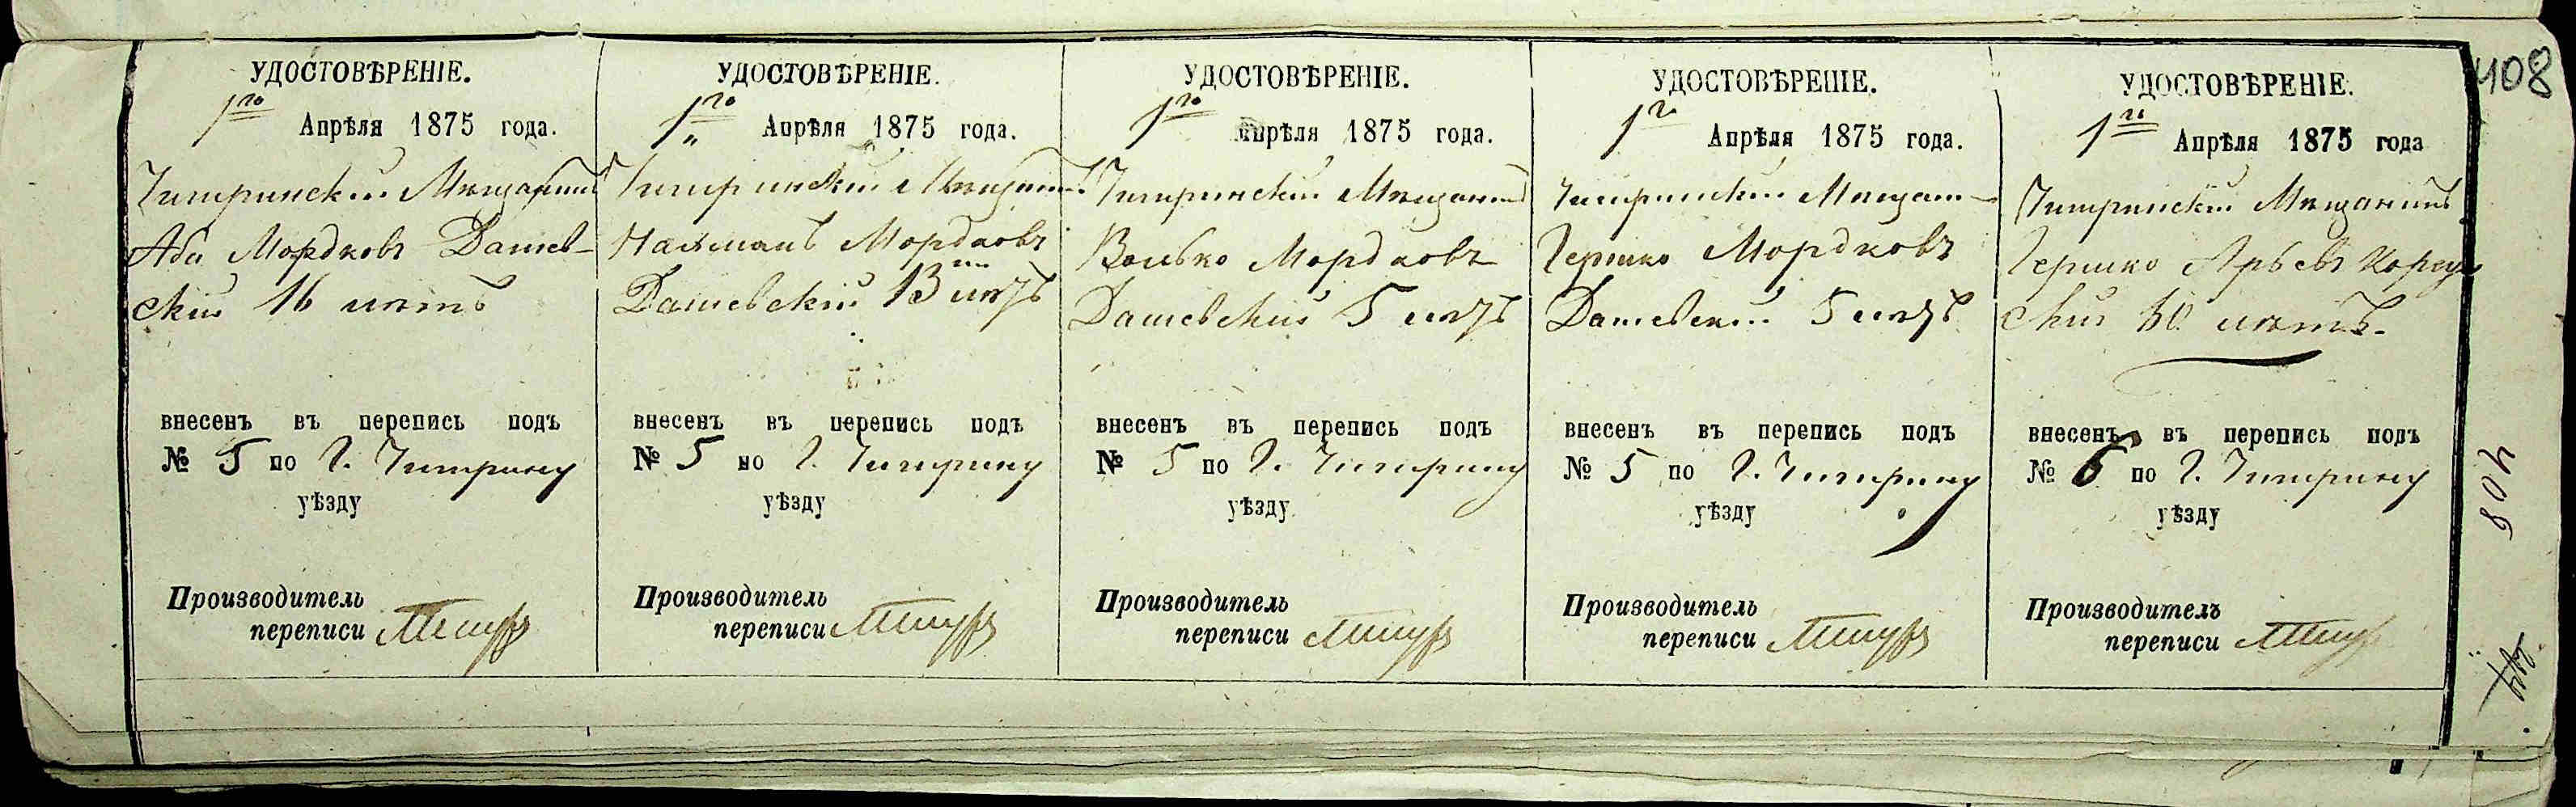 УДОСТОВѢРЕНІЕ.
1го Апрѣля 1875 года.
Чигиринскій Мѣщанинъ
Аба Мордковъ Дашев-
скій 16 лѣтъ
внесенъ въ перепись подъ
№ 5 по г. Чигирину
уѣзду
Производитель
переписи
УДОСТОВѢРЕНІЕ.
1го Апрѣля 1875 года.
Чигиринскій Мѣщанинъ
Нахманъ Мордковъ
Дашевскій 13 лѣтъ
внесенъ въ перепись подъ
№ 5 по г. Чигирину
уѣзду
Производитель
переписи
УДОСТОВѢРЕНІЕ.
1го Апрѣля 1875 года.
Чигиринскій Мѣщанинъ
Волько Мордковъ
Дашевскій 5 лѣтъ
внесенъ въ перепись подъ
№ 5 по г. Чигирину
уѣзду
Производитель
переписи
УДОСТОВѢРЕНІЕ.
1го Апрѣля 1875 года.
Чигиринскій Мѣщан-
Гершко Мордковъ
Дашевскій 5 лѣтъ
внесенъ въ перепись подъ
№ 5 по г. Чигирину
уѣзду
Производитель
переписи
УДОСТОВѢРЕНІЕ.
1го Апрѣля 1875 года
Чигиринскій Мѣщанинъ
Гершко Арьевъ
скій лѣтъ.
внесенъ въ перепись подъ
№ 6 по г. Чигирину
уѣзду
Производитель
переписи
408
408